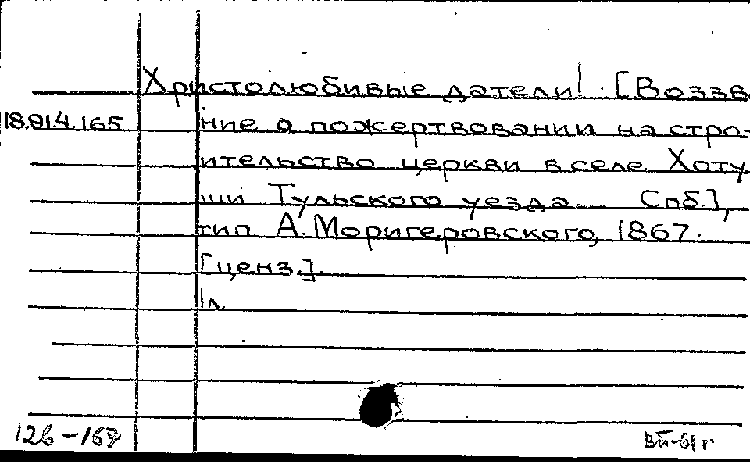 Христолюбивые датели! [Воззв
18.914.165 ние о пожертвовании на стро-
ительство церкви в селе Хоту
ши Тульского уезда. Спб.],
тип А. Моригеровского, 1867.
[ценз.].
1 л.
126-167